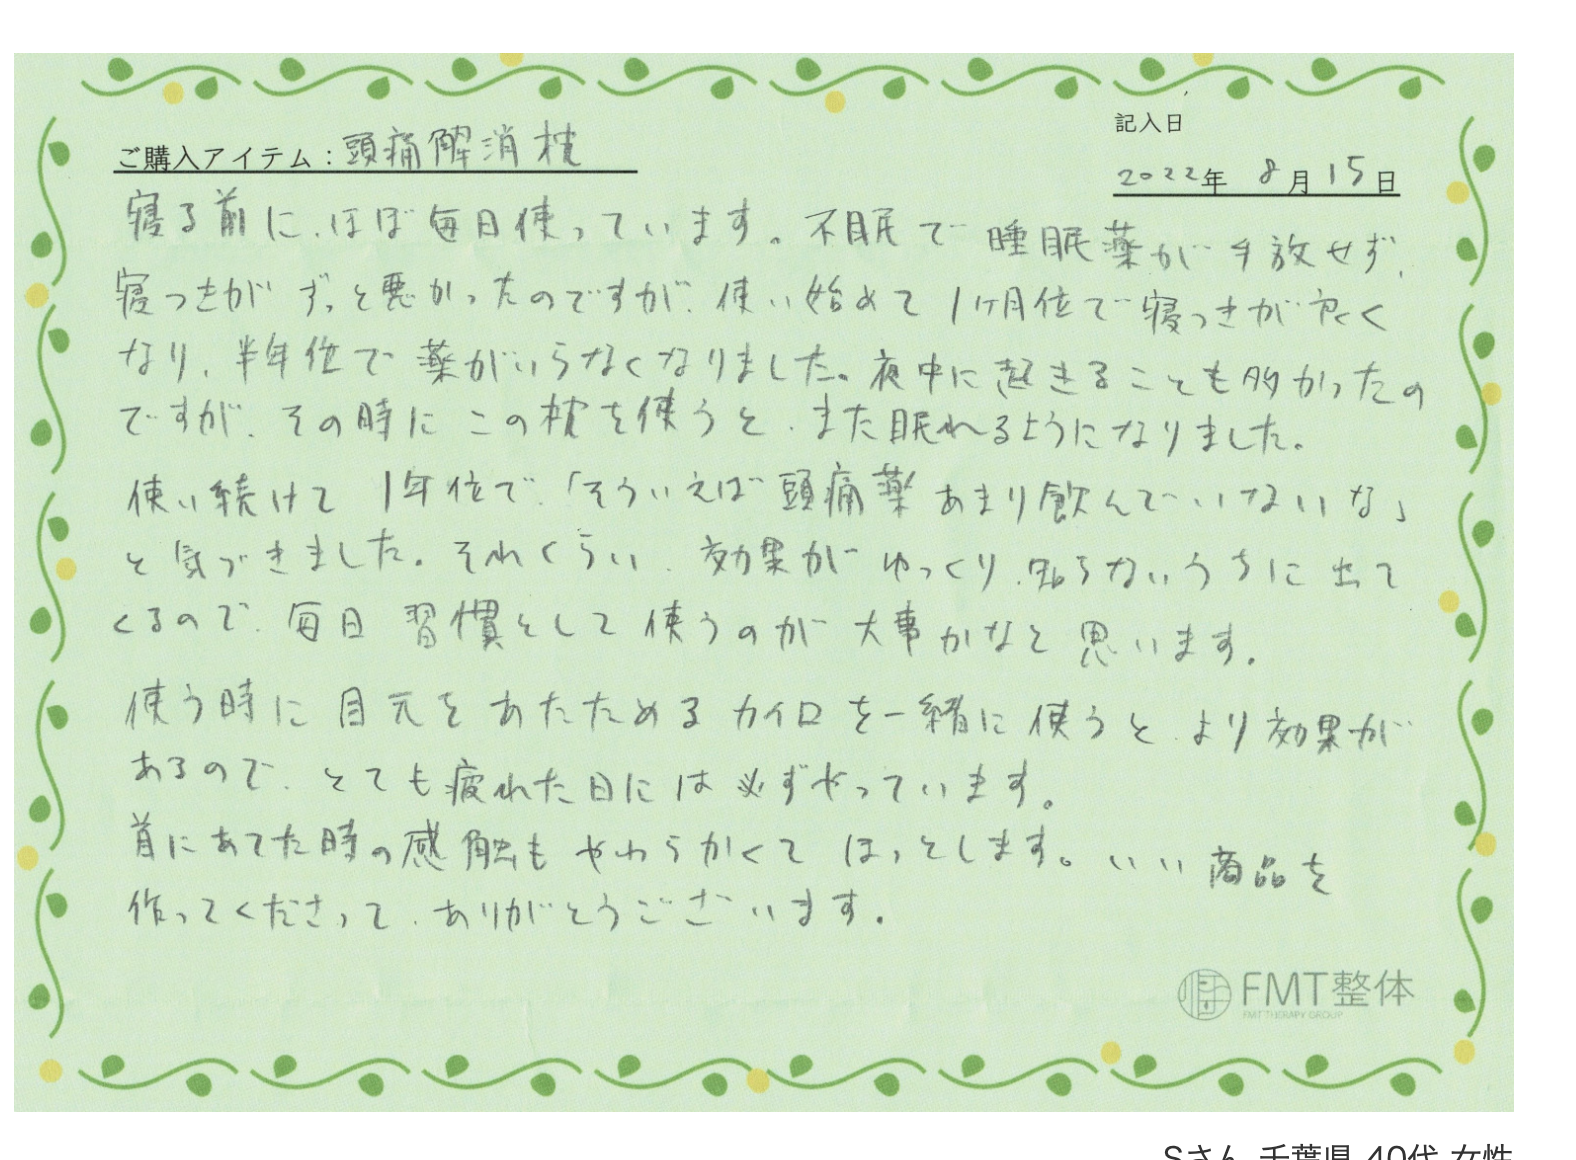 記入日
ご購入アイテム：頭痛解消枕
2022年 8月15日
寝る前に、ほぼ毎日使っています。不眠で睡眠薬が手放せず、
寝つきがずっと悪かったのですが、使い始めて1ヶ月位で寝つきが良く
なり、半年位で薬がいらなくなりました。夜中に起きることも多かったの
ですが、その時にこの枕を使うと、また眠れるようになりました。
使い続けて1年位で、「そういえば頭痛薬あまり飲んでいないいな」
と気づきました。それくらい、効果がゆっくり、知らないうちに出て
くるので、毎日習慣として使うのが大事かなと思います。
使う時に目元をあたためるカイロを一緒に使うと、より効果が
あるので、とても疲れた日には必ずやっています。
首にあてた時の感触もやわらかくてほっとします。いい商品を
作ってくださって、ありがとうございます。
FMT整体
FMT THERAPY GROUP
Sさん 千葉県 40代 女性